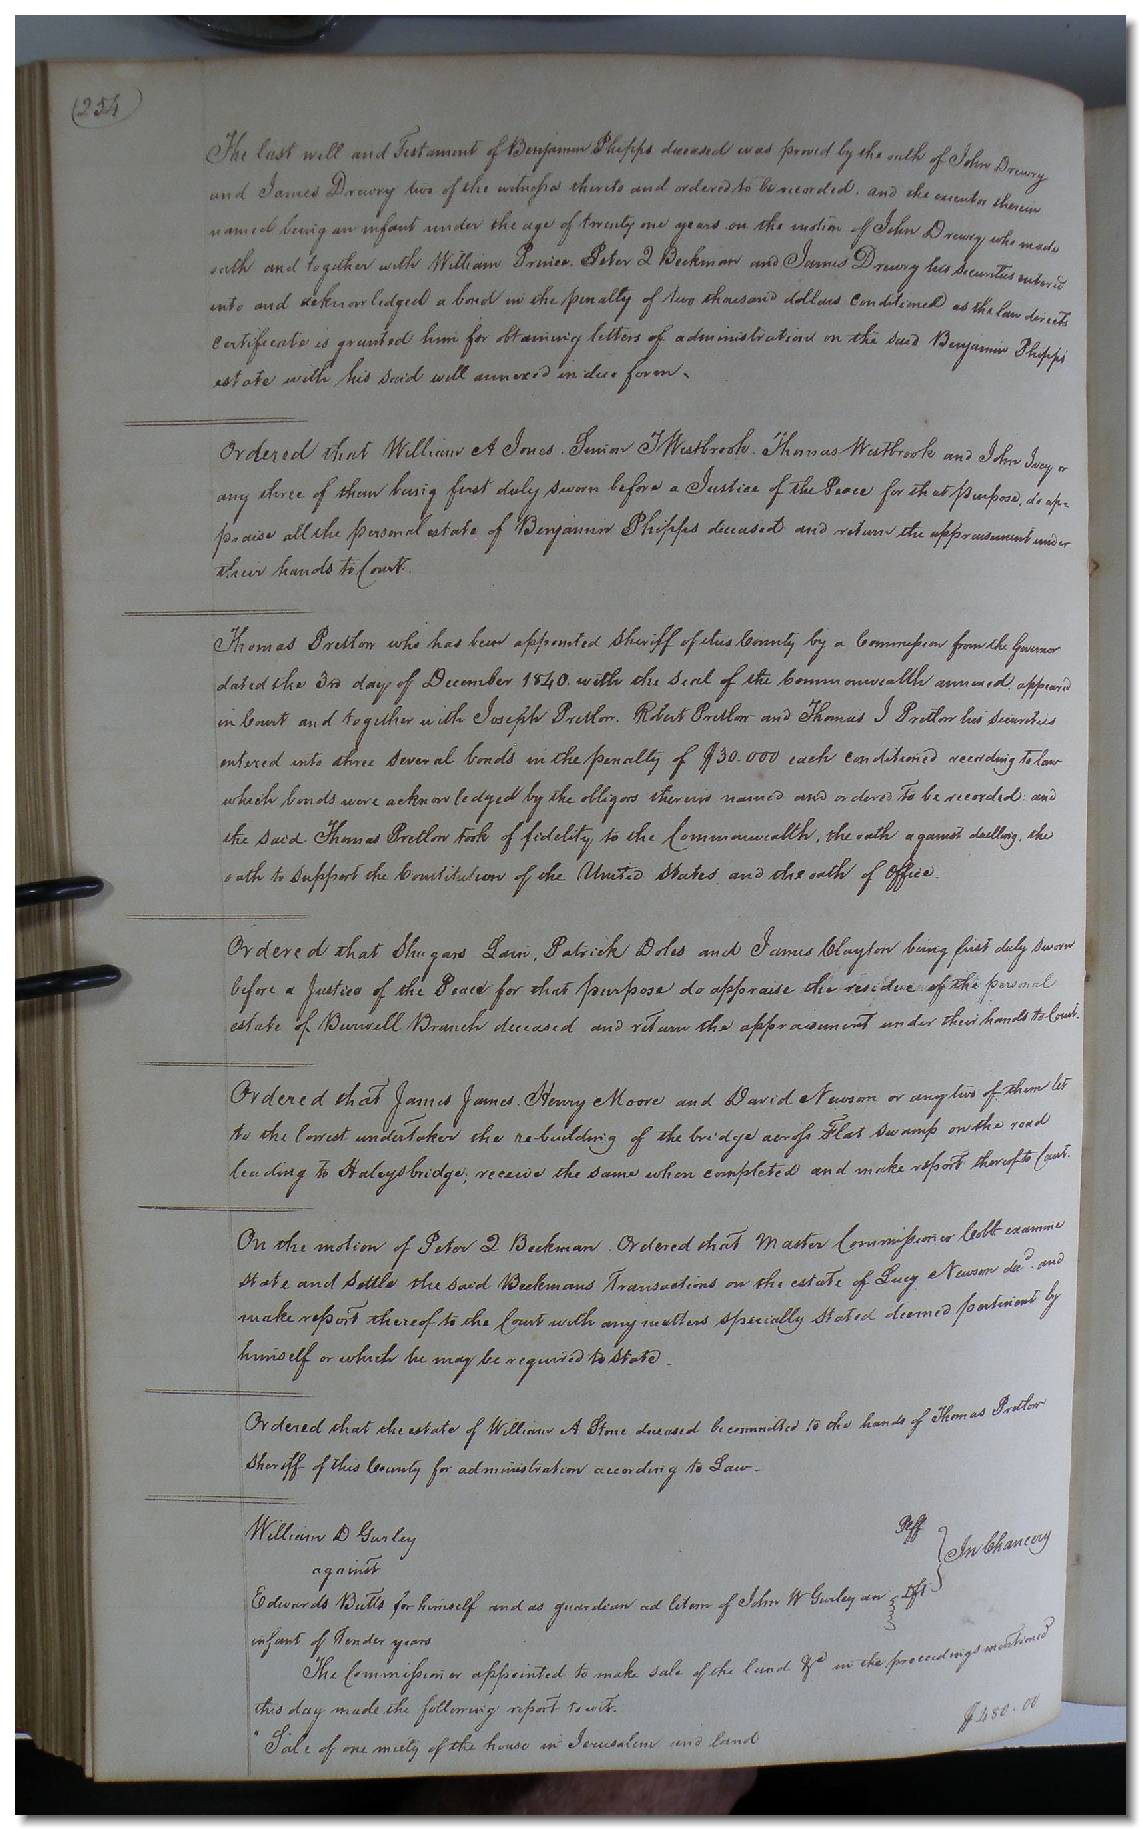 (254)
The last will and Testament of Benjamin Phipps deceased was proved by the oath of John Drewry
and James Drewry two of the witnesses thereto and ordered to be recorded. and the executor therein
named being an infant under the age of twenty one years on the motion of John Drewry who made
oath and together with William Prince. Peter J Beekman and James Drewry his securities entered
into and acknowledged a bond in the penalty of two thousand dollars conditioned as the law directs
certificate is granted him for obtaining letters of administration on the said Benjamin Phipps
estate with his said will annexed in due form.
Ordered that William A Jones. T Westbrook. Thomas Westbrook and John Ivey or
any three of them being first duly sworn before a Justice of the Peace for that purpose, do ap-
praise all the personal estate of Benjamin Phipps deceased and return the appraisement under
their hands to Court.
Thomas Pretlow who has been appointed Sheriff of this County by a Commission from the Governor
dated the 3rd day of December 1840. with the seal of the Commonwealth annexed. appeared
in Court and together with Joseph Pretlow. Robert Pretlow and Thomas J Pretlow his securities
entered into three several bonds in the penalty of $30.000 each conditioned according to law
which bonds were acknowledged by the obligors therein named and ordered to be recorded: and
the said Thomas Pretlow took of fidelity to the Commonwealth, the oath against duelling, the
oath to support the Constitution of the United States and the oath of Office.
Ordered that Shugars Lain, Patrick Doles and James Clayton being first duly sworn
before a Justice of the Peace for that purpose do appraise the residue of the personal
estate of Burwell Branch deceased and return the appraisement under their hands to Court.
Ordered that James James. Henry Moore and David Newsom or any two of them let
to the lowest undertaker the rebuilding of the bridge across Flat swamp on the road
leading to Haleysbridge, receive the same when completed and make report thereof to Court.
On the motion of Peter J Beekman. Ordered that Master Commissioner Cobb examine
state and settle the said Beekmans Transactions on the estate of Lucy Newsom decd. and
make report thereof to the Court with any matters specially stated deemed pertinent by
himself or which he may be required to state.
Ordered that the estate of William A Stone deceased be committed to the hands of Thomas Pretlow
Sheriff of this County for administration according to Law.
William D Gurley Plff
against } In Chancery
Edwards Butts for himself and as guardian ad litem of John W Gurley an } Dft
infant of tender years
The Commissioner appointed to make sale of the land &c in the proceedings mentioned
this day made the following report to wit.
" Sale of one moiety of the house in Jerusalem and land $480.00